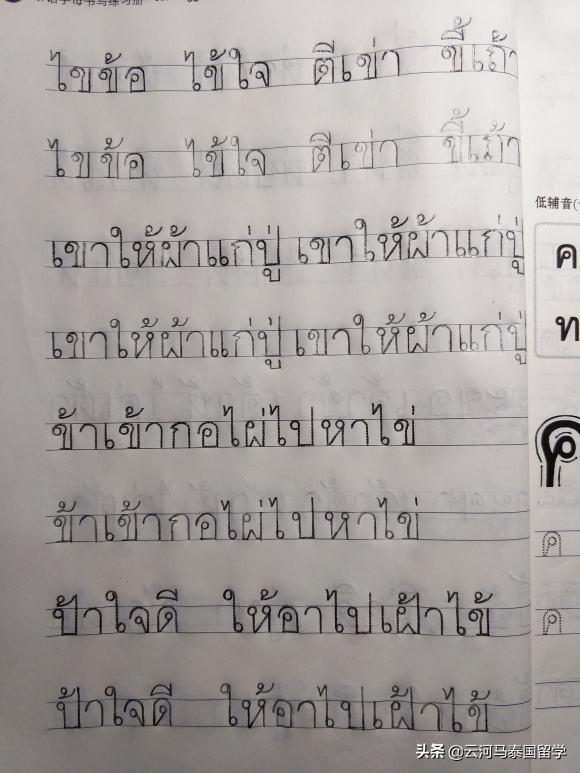 ไขข้อ ไข้ใจ ตีเข่า ขี้เถ้า
ไขข้อ ไข้ใจ ตีเข่า ขี้เถ้า
เขาให้ผ้าแก่ปู่ เขาให้ผ้าแก่ปู่
เขาให้ผ้าแก่ปู่ เขาให้ผ้าแก่ปู่
ข้าเข้ากอไผ่ไปหาไข่
ข้าเข้ากอไผ่ไปหาไข่
ป้าใจดี ให้อาไปเฝ้าไข้
ป้าใจดี ให้อาไปเฝ้าไข้
低辅音(
ค
ท
ค
ค
ค
头条 @云河马泰国留学